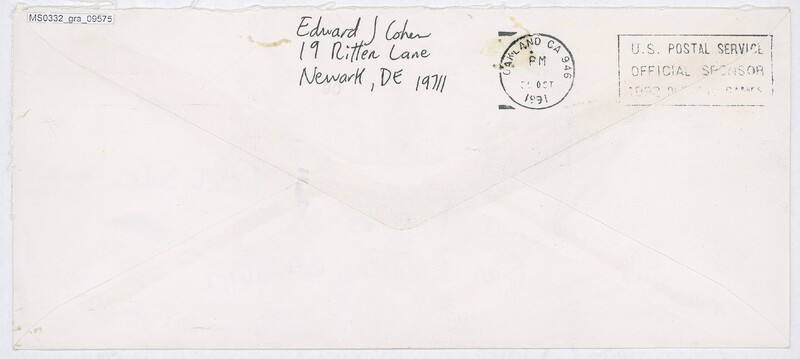 MS0332_gra_09575
Edward J Cohen
19 Ritter Lane
Newark, DE 19711
OAKLAND CA 946
PM
OCT
1991
U.S. POSTAL SERVICE
OFFICIAL SPONSOR
1992 GAMES